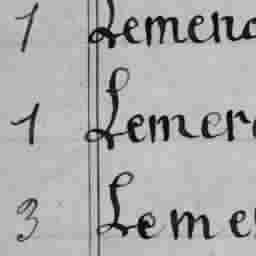 1 Lemen
1 Lemer
3 Leme